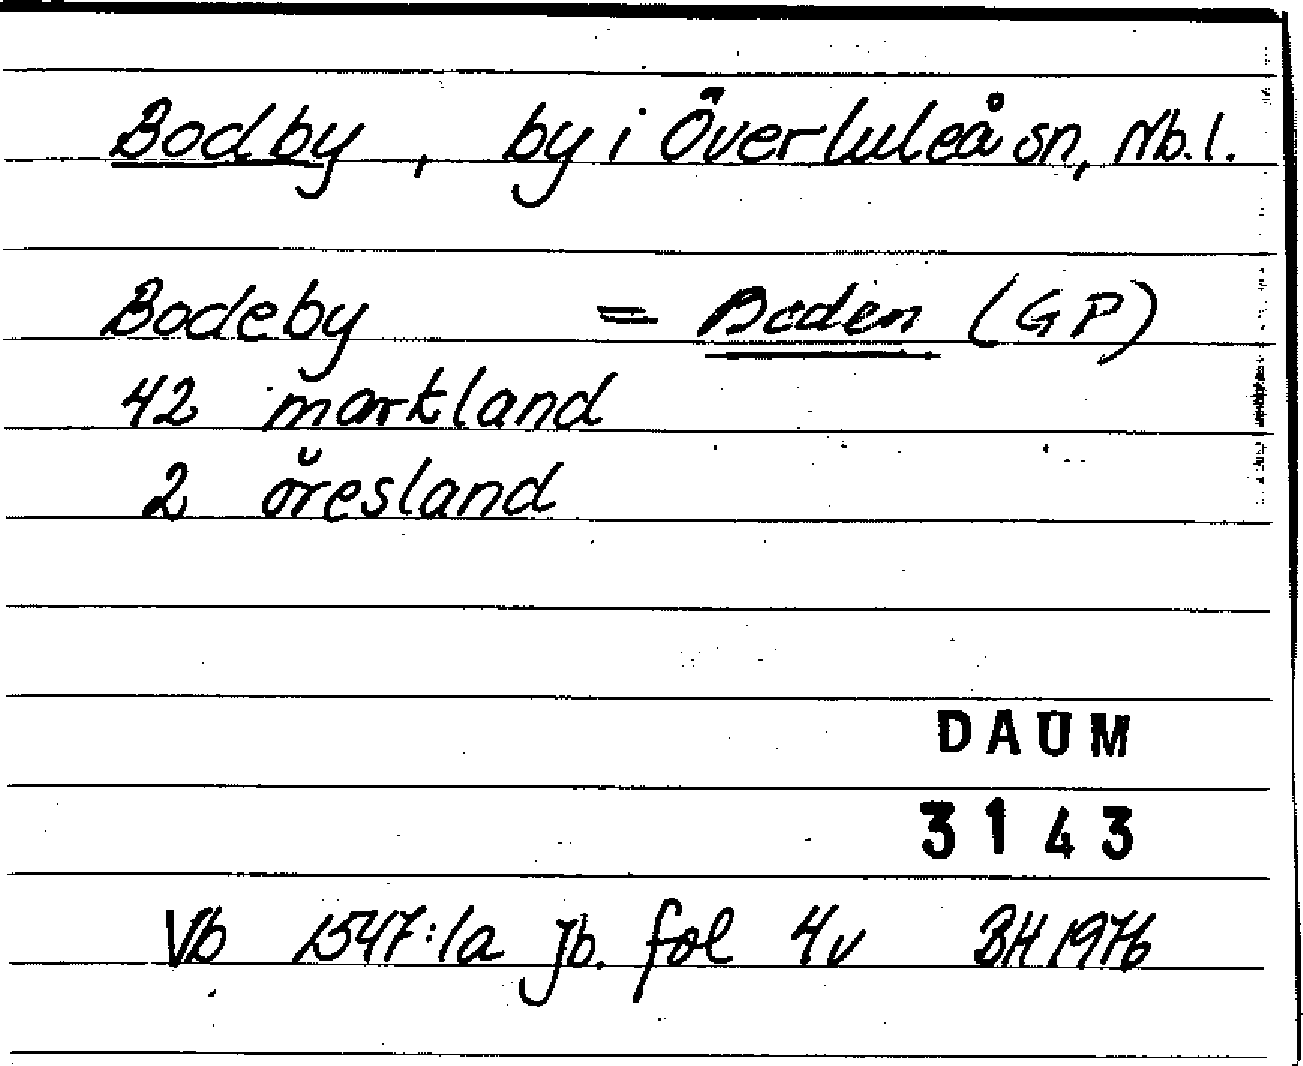 Bodby, by i Överluleå sn, Nb.l.
Bodeby = Boden (GP)
42 markland
2 öresland
DAUM
3143
Vb 1547:1a jb. fol 4v BH 1976